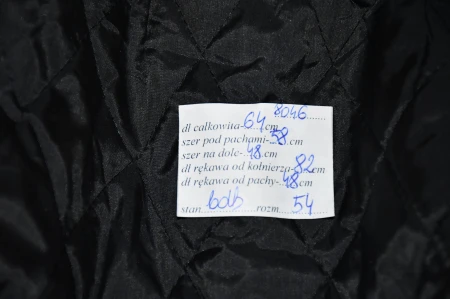 8046
dl całkowita-64 cm
szer pod pachami-58 cm
szer na dole-48 cm
dł rękawa od kołnierza-82 cm
dł rękawa od pachy-48 cm
stan bdb rozm 54